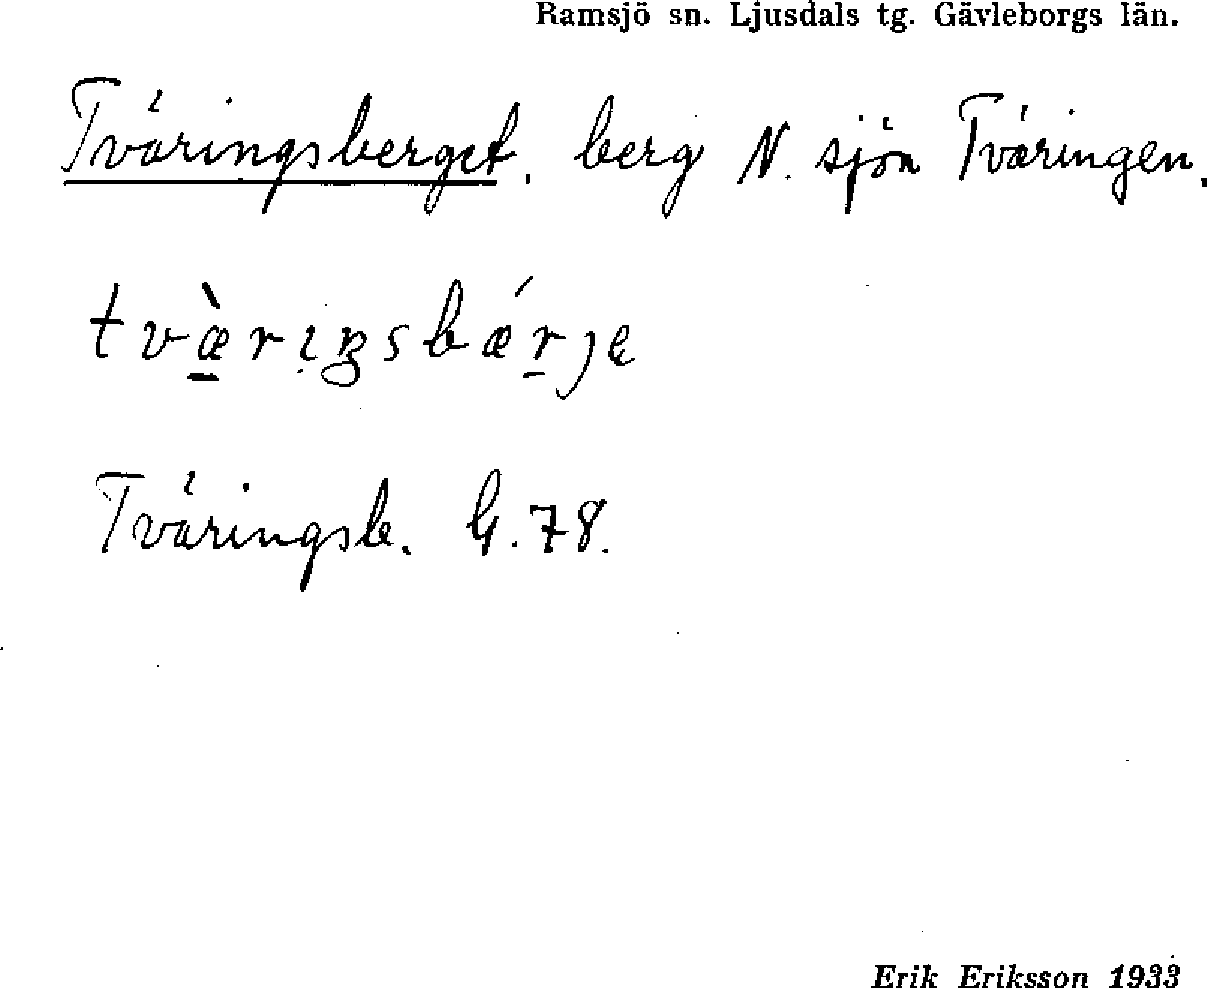 Ramsjö sn. Ljusdals tg. Gävleborgs län.
Tväringsberget. berg N. sjön Tväringen.
tvæ̀riŋsbǽrje
Tväringsb. G.78.
Erik Eriksson 1933